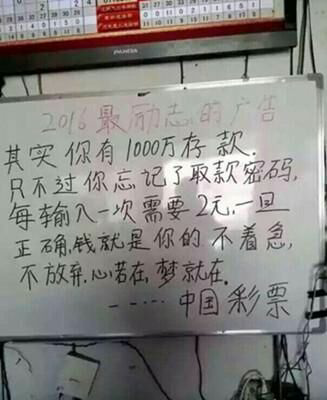 PANDA
2016最励志的广告
其实你有1000万存款.
只不过你忘记了取款密码,
每输入一次需要2元,一旦
正确,钱就是你的 不着急,
不放弃.心若在,梦就在.
-----中国彩票